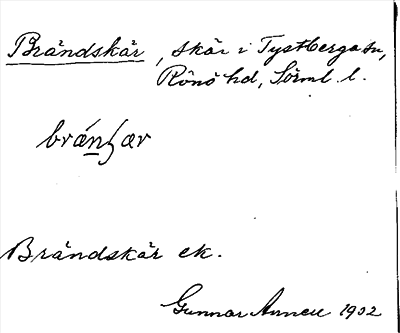 Brändskär, skär i Tystberga sn,
Rönö hd, Sörml. l.
brǽnʃær
Brändskär ek.
Gunnar Annell 1932